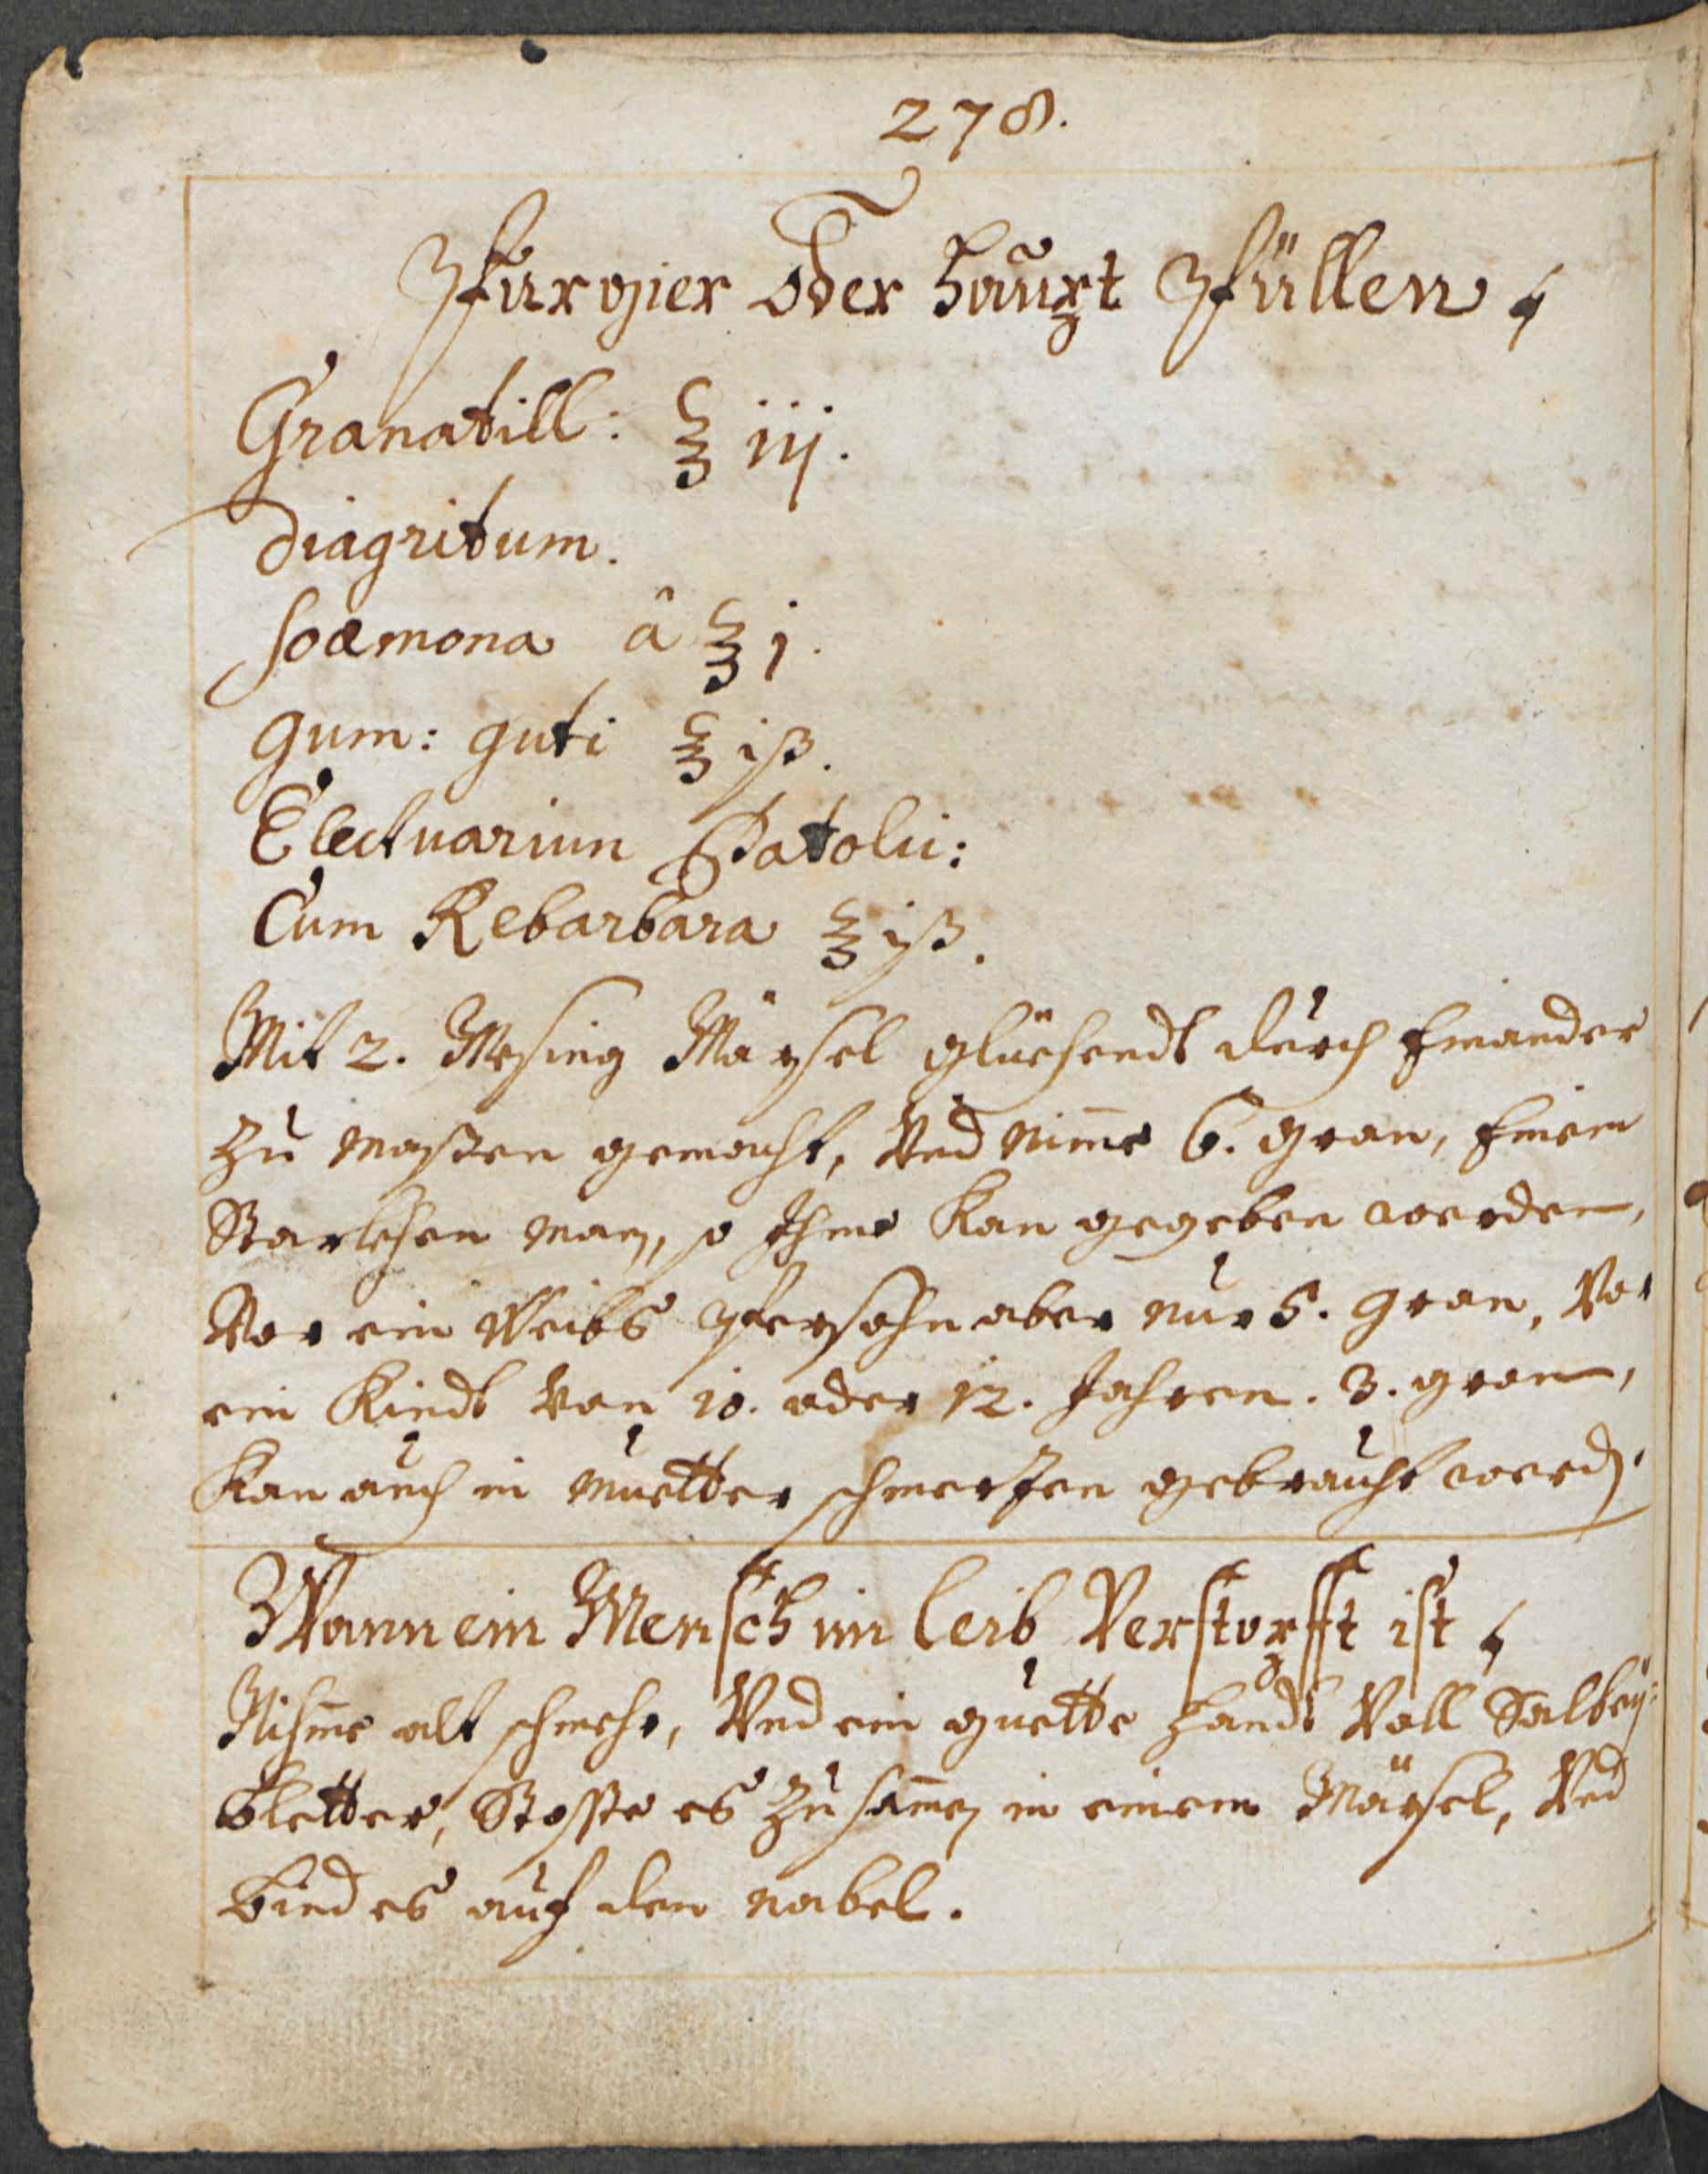 278.
Purgier oder haupt Püllen,
Granatill: ℥ iij.
diagritum.
soamona â ℥ j.
gum: guti ℥ iß.
Electuarium Catolii:
Cum Rebarbara ℥ iß.
Mit 2. Mesing Märsel glüehendt durch Einander
zu Maßen gemacht, Und nime 6. gran, Einem
Starckhen man, so Ihme Kan gegeben werden,
Vor ein Weibs Persohn aber nur 5. gran, Vor
ein Kindt von 10. oder 12. Jahren. 3. gran,
Kan auch in muetter schmerzen gebraucht werd.
Wann ein Mensch im leib Verstopfft ist,
Nihme alt schmehr, Und ein guette handt Voll Salbeÿ=
bletter, Stosse es zu samen in einem Märsel, Und
bind es auf den nabel.